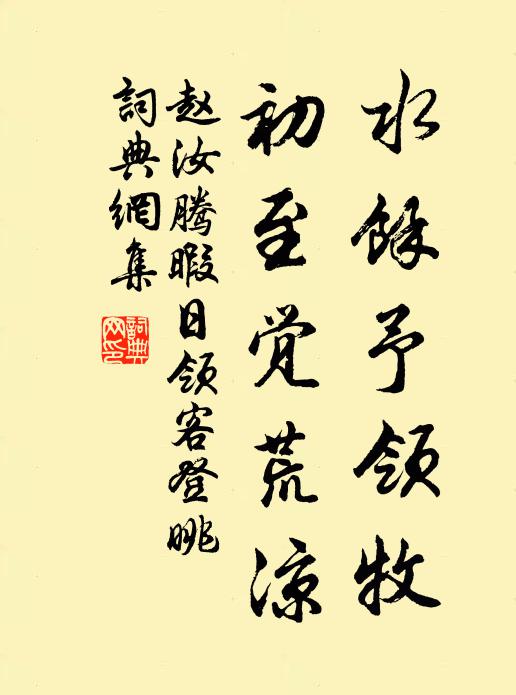 水餘予领牧
初至觉荒凉
赵汝腾暇日领客登眺
詞典網集
詞典网印